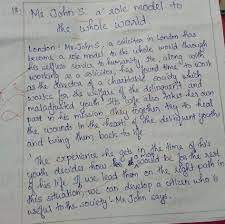 18. Mr John S. a role model to
the whole world.
London: Mr. John S., a solicitor in London has
become a role model to the whole world through
his selfless service to humanity. He, along with
working as a solicitor, has found time to work
as the director of a charitable society which
works for the welfare of the delinquent and
maladjusted youth. His wife also takes her own
part in his mission. They together try to heal
the wounds in the hearts of the delinquent youths
and bring them back to life.
The experience he gets in the time of his
youth decides how he would be for the rest
of his life. If we lead them on the right path in
this situation we can develop a citizen who is
useful to the society - Mr John says.